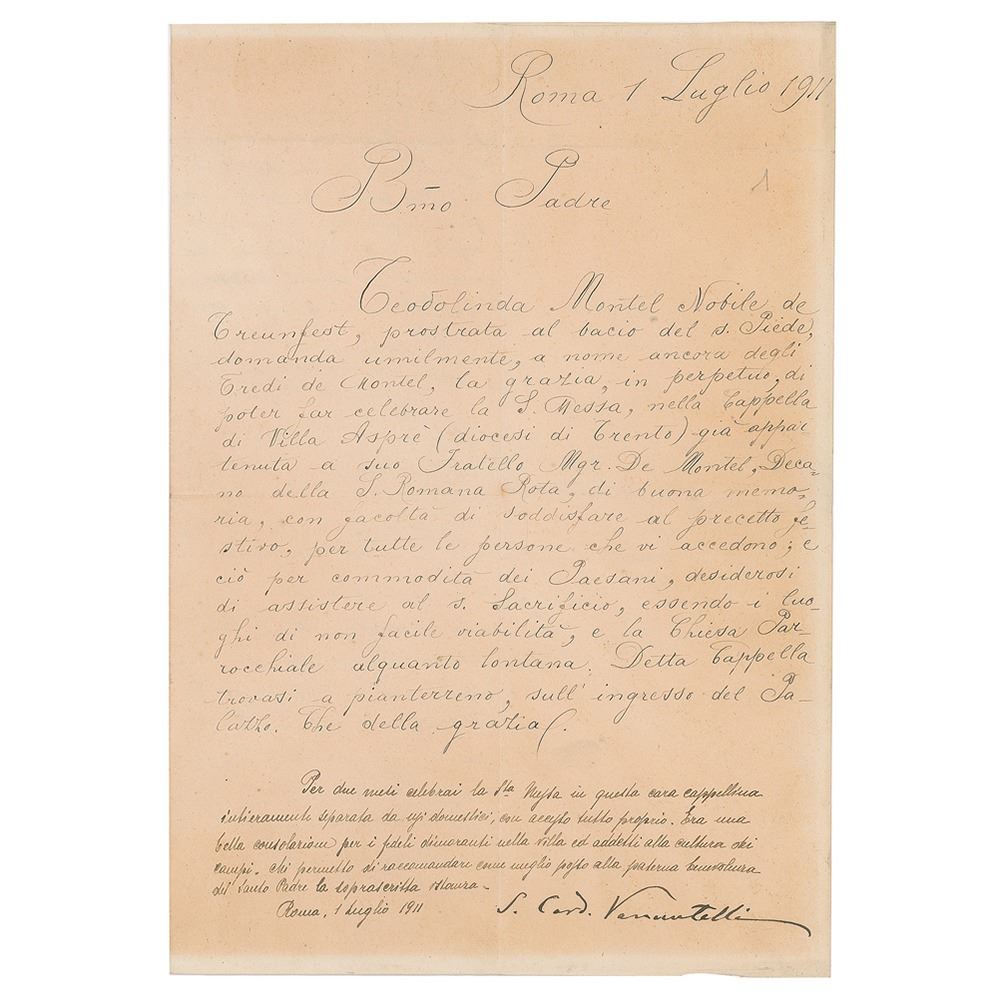 Roma 1 Luglio 1911
1
Bmo Padre
Teodolinda Montel Nobile de
Treunfest, prostrata al bacio del s. Piede,
domanda umilmente, a nome ancora degli
Eredi de Montel, la grazia, in perpetuo, di
poter far celebrare la S. Messa, nella Cappella
di Villa Asprè (diocesi di Trento) già appar-
tenuta a suo Fratello Mgr. De Montel, Deca-
no della S. Romana Rota, di buona memo-
ria, con facoltà di soddisfare al precetto fe-
stivo, per tutte le persone che vi accedono; e
ciò per commodità dei Paesani, desiderosi
di assistere al s. Sacrificio, essendo i luo-
ghi di non facile viabilità, e la Chiesa Par-
rocchiale alquanto lontana. Detta Cappella
trovasi a pianterreno, sull' ingresso del Pa-
lazzo. Che della grazia
Per due mesi celebrai la Sta Messa in questa cara cappellina
intieramente separata da usi domestici, con accesso tutto proprio. Era una
bella consolazione per i fedeli dimoranti nella villa ed addetti alla cultura dei
campi. Mi permetto di raccomandare come meglio posso alla paterna benevolenza
del Santo Padre la soprascritta istanza.
Roma, 1 Luglio 1911 S. Card. Vannutelli